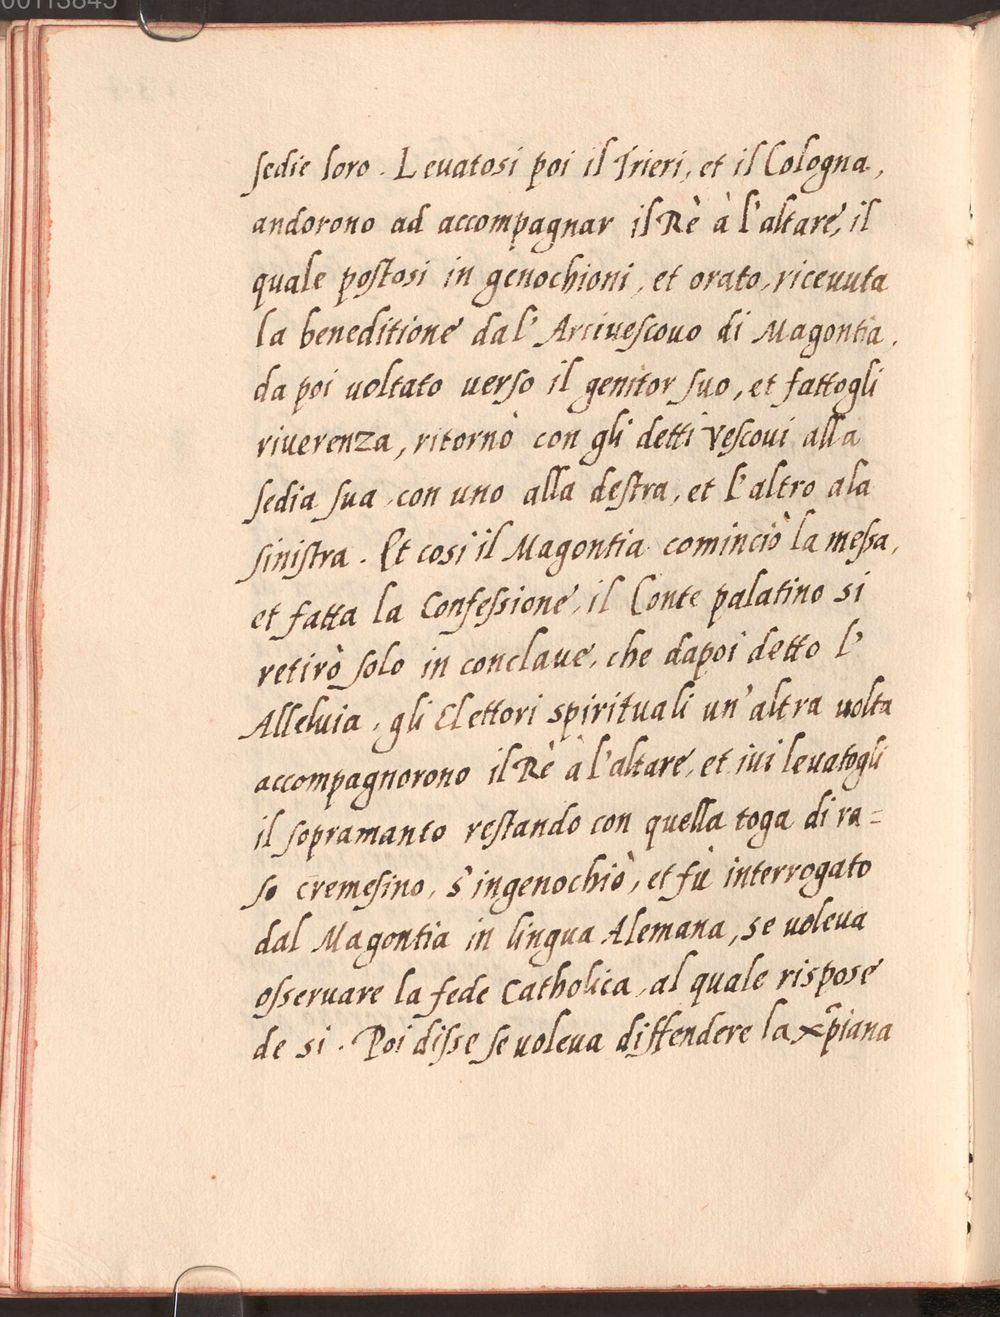 00113845
sedie loro. Leuatosi poi il Trieri, et il Cologna,
andorono ad accompagnar il Rè à l'altare, il
quale postosi in genochioni, et orato, riceuuta
la beneditione dal' Arciuescouo di Magontia,
da poi uoltato uerso il genitor suo, et fattogli
riuerenza, ritornò con gli detti Vescoui alla
sedia sua, con uno alla destra, et l'altro ala
sinistra. Et cosi il Magontia cominciò la messa,
et fatta la Confessione, il Conte palatino si
retirò solo in conclaue, che dapoi detto l'
Alleluia, gli Elettori spirituali un'altra uolta
accompagnorono il Rè à l'altare, et iui leuatogli
il sopramanto restando con quella toga di ra=
so cremesino, s'ingenochiò, et fù interrogato
dal Magontia in lingua Alemana, se uoleua
osseruare la fede Catholica, al quale rispose
de si. Poi disse se uoleua diffendere la xp̃iana